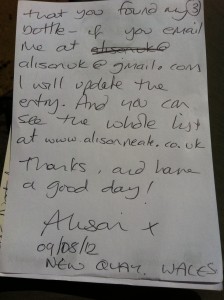 that you found my 3
bottle - if you email
me at alisonuk@
alisonuk@gmail.com
I will update the
entry. And you can
see the whole list
at www.alisonneale.co.uk
Thanks, and have
a good day!
Alison x
09/08/12
NEW QUAY, WALES